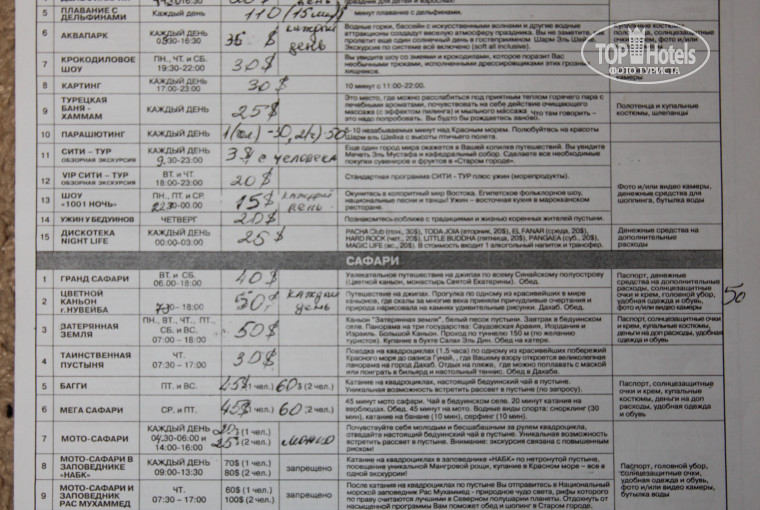 5 ПЛАВАНИЕ С ДЕЛЬФИНАМИ Каждый день 110 (15 мин) минут плавание с дельфинами.
6 АКВАПАРК КАЖДЫЙ ДЕНЬ -16:30 35 $ каждый день
Водные горки, бассейн с искусственными волнами и другие водные
аттракционы создадут веселую атмосферу праздника. Вы не заметите,
пролетит еще один солнечный день в гостеприимном Шарм Эль
Экскурсия по системе всё включено (soft all inclusive).
TOP Hotels
ФОТО ТУРИСТА
7 КРОКОДИЛОВОЕ ШОУ ПН., ЧТ. И СБ. 19:30-22:00 30 $
Вы увидите шоу со змеями и крокодилами, которое поразит Вас
необычными трюками, исполненными дрессировщиками этих грозных
хищников.
8 КАРТИНГ КАЖДЫЙ ДЕНЬ 17:00-23:00 30 $ 10 минут с 11:00-22:00.
9 ТУРЕЦКАЯ БАНЯ - ХАММАМ КАЖДЫЙ ДЕНЬ 25 $
Это место, где можно расслабиться под приятным теплом горячего пара с
лечебными ароматами, почувствовать на себе действие очищающего
массажа (с эффектом пилинга) и мыльного массажа Что там говорить –
это надо попробовать. Вы будто бы рождаетесь заново.
Полотенца и купальные костюмы, шлепанцы
10 ПАРАШЮТИНГ КАЖДЫЙ ДЕНЬ
8-10 незабываемых минут над Красным морем. Полюбуйтесь на красоты
Шарм эль Шейха с высоты птичьего полета.
11 СИТИ – ТУР ОБЗОРНАЯ ЭКСКУРСИЯ КАЖДЫЙ ДЕНЬ .30-23:00 3 $ с человека
Еще один город мира окажется в Вашей копилке путешествий. Вы увидите
Мечеть Эль Мустафа и кафедральный собор. Сделаете все необходимые
покупки сувениров и фруктов в «Старом городе».
12 VIP СИТИ – ТУР ОБЗОРНАЯ ЭКСКУРСИЯ ВТ. И ЧТ. 18:00-23:00 20 $
Стандартная программа СИТИ - ТУР плюс ужин (морепродукты).
Фото и/или видео камеры, денежные средства для шоппинга, бутылка воды
13 ШОУ «1001 НОЧЬ» ПН., ПТ. И СР. 00:00 15 $ каждый день
Окунитесь в колоритный мир Востока. Египетское фольклорное шоу,
национальные песни и танцы! Ужин – восточная кухня в марокканском
ресторане.
14 УЖИН У БЕДУИНОВ ЧЕТВЕРГ 20 $ Познакомьтесь поближе с традициями и жизнью коренных жителей пустыни.
15 ДИСКОТЕКА NIGHT LIFE КАЖДЫЙ ДЕНЬ 00:00-03:00 25 $
PACHA Club (пон., 30$), TODA JOIA (вторник, 20$), EL FANAR (среда, 20$),
HARD ROCK (чет., 20$), LITTLE BUDDHA (пятница, 20$), PANGAEA (суб., 20$),
MAGIC LIFE (вс., 20 $). В стоимость входит 1 алкогольный напиток и трансфер.
Денежные средства на дополнительные расходы
САФАРИ
1 ГРАНД САФАРИ ВТ. И СБ. 06.00-18:00 40 $
Увлекательное путешествие на джипах по всему Синайскому полуострову
(Цветной каньон, монастырь Святой Екатерины). Обед.
2 ЦВЕТНОЙ КАНЬОН г.НУВЕЙБА - 18:00 50 каждый день
Путешествие на джипах. Прогулка по одному из красивейших в мире
каньонов, где скалы за многие века приняли причудливые очертания и
природа нарисовала на камнях удивительные рисунки. Дахаб. Обед.
Паспорт, денежные средства на дополнительные расходы, солнцезащитные очки и крем, головной убор, удобная одежда и обувь, фото и/или видео камеры
50
3 ЗАТЕРЯННАЯ ЗЕМЛЯ ПН., ВТ., ЧТ., ПТ., СБ. И ВС. 07:00 – 18:00 50 $
Каньон "Затерянная земля", белый песок пустыни. Завтрак в бедуинском
селе. Панорама на три государства: Саудовская Аравия, Иордания и
Израиль. Большой Каньон. Проход по туннелю 150 м (по желанию
туристов). Купание в бухте Салах Эль Дин. Обед на катере.
Паспорт, солнцезащитные очки и крем, купальные костюмы, деньги на доп расходы, удобная одежда и обувь
4 ТАИНСТВЕННАЯ ПУСТЫНЯ ЧТ. 07:30 – 17:00 30 $
Поездка на квадроциклах (1,5 часа) по одному из красивейших побережий
Красного моря до оазиса Гунай, , где Вашему взору откроется великолепная
панорама на город Дахаб. Отдых на пляже, где можно поплавать с маской
или поиграть в бильярд и настольный теннис. Обед в Дахабе.
5 БАГГИ ПТ. И ВС. 45 $ (1 чел.) 60 $ (2 чел.)
Катание на квадроциклах, настоящий бедуинский чай в пустыне.
Уникальная возможность встретить рассвет в пустыне (по запросу).
Паспорт, солнцезащитные очки и крем, купальные костюмы, деньги на доп расходы, удобная одежда и обувь
6 МЕГА САФАРИ СР. И ПТ. 45 $ (1 чел.) 60 (2 чел.)
45 минут мото сафари. Чай в бедуинском селе. 20 минут катания на
верблюдах. Обед. 45 минут на мото. Водные виды спорта: снорклинг (30
мин), катание на банане (10 мин), серфинг (10 мин).
7 МОТО-САФАРИ КАЖДЫЙ ДЕНЬ -06:00 и 14:00-16:00 20 $ (1 чел.) 25 $ (2 чел.) можно
Почувствуйте себя молодым и бесшабашным за рулем квадроцикла,
отведайте настоящий бедуинский чай в пустыне. Уникальная возможность
встретить рассвет в пустыне. Внимание: экскурсия связана с повышенным
риском!
8 МОТО-САФАРИ В ЗАПОВЕДНИКЕ «НАБК» КАЖДЫЙ ДЕНЬ 09:00-13:30 70$ (1 чел.) 80$ (2 чел.) запрещено
Катание на квадроциклах в заповеднике «НАБК» по нетронутой пустыне,
посещение уникальной Мангровой рощи, купание в Красном море – все в
одной экскурсии!
Паспорт, головной убор, солнцезащитные очки, удобная одежда и обувь, фото и/или видео камеры, бутылка воды
9 МОТО-САФАРИ И ЗАПОВЕДНИК РАС МУХАММЕД ЧТ. 07:30 – 17:00 60$ (1 чел.) 100$ (2 чел.) запрещено
После катания на квадроциклах по пустыне Вы отправитесь в Национальный
морской заповедник Рас Мухаммед - природное чудо света, рифы которого
по праву считаются лучшими в Северном полушарии планеты. Отдохнуть от
насыщенной программы Вам поможет обед и шопинг в Старом городе.